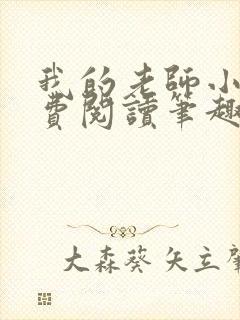 我的老師小
費閱讀筆趣
大森葵 矢立肇